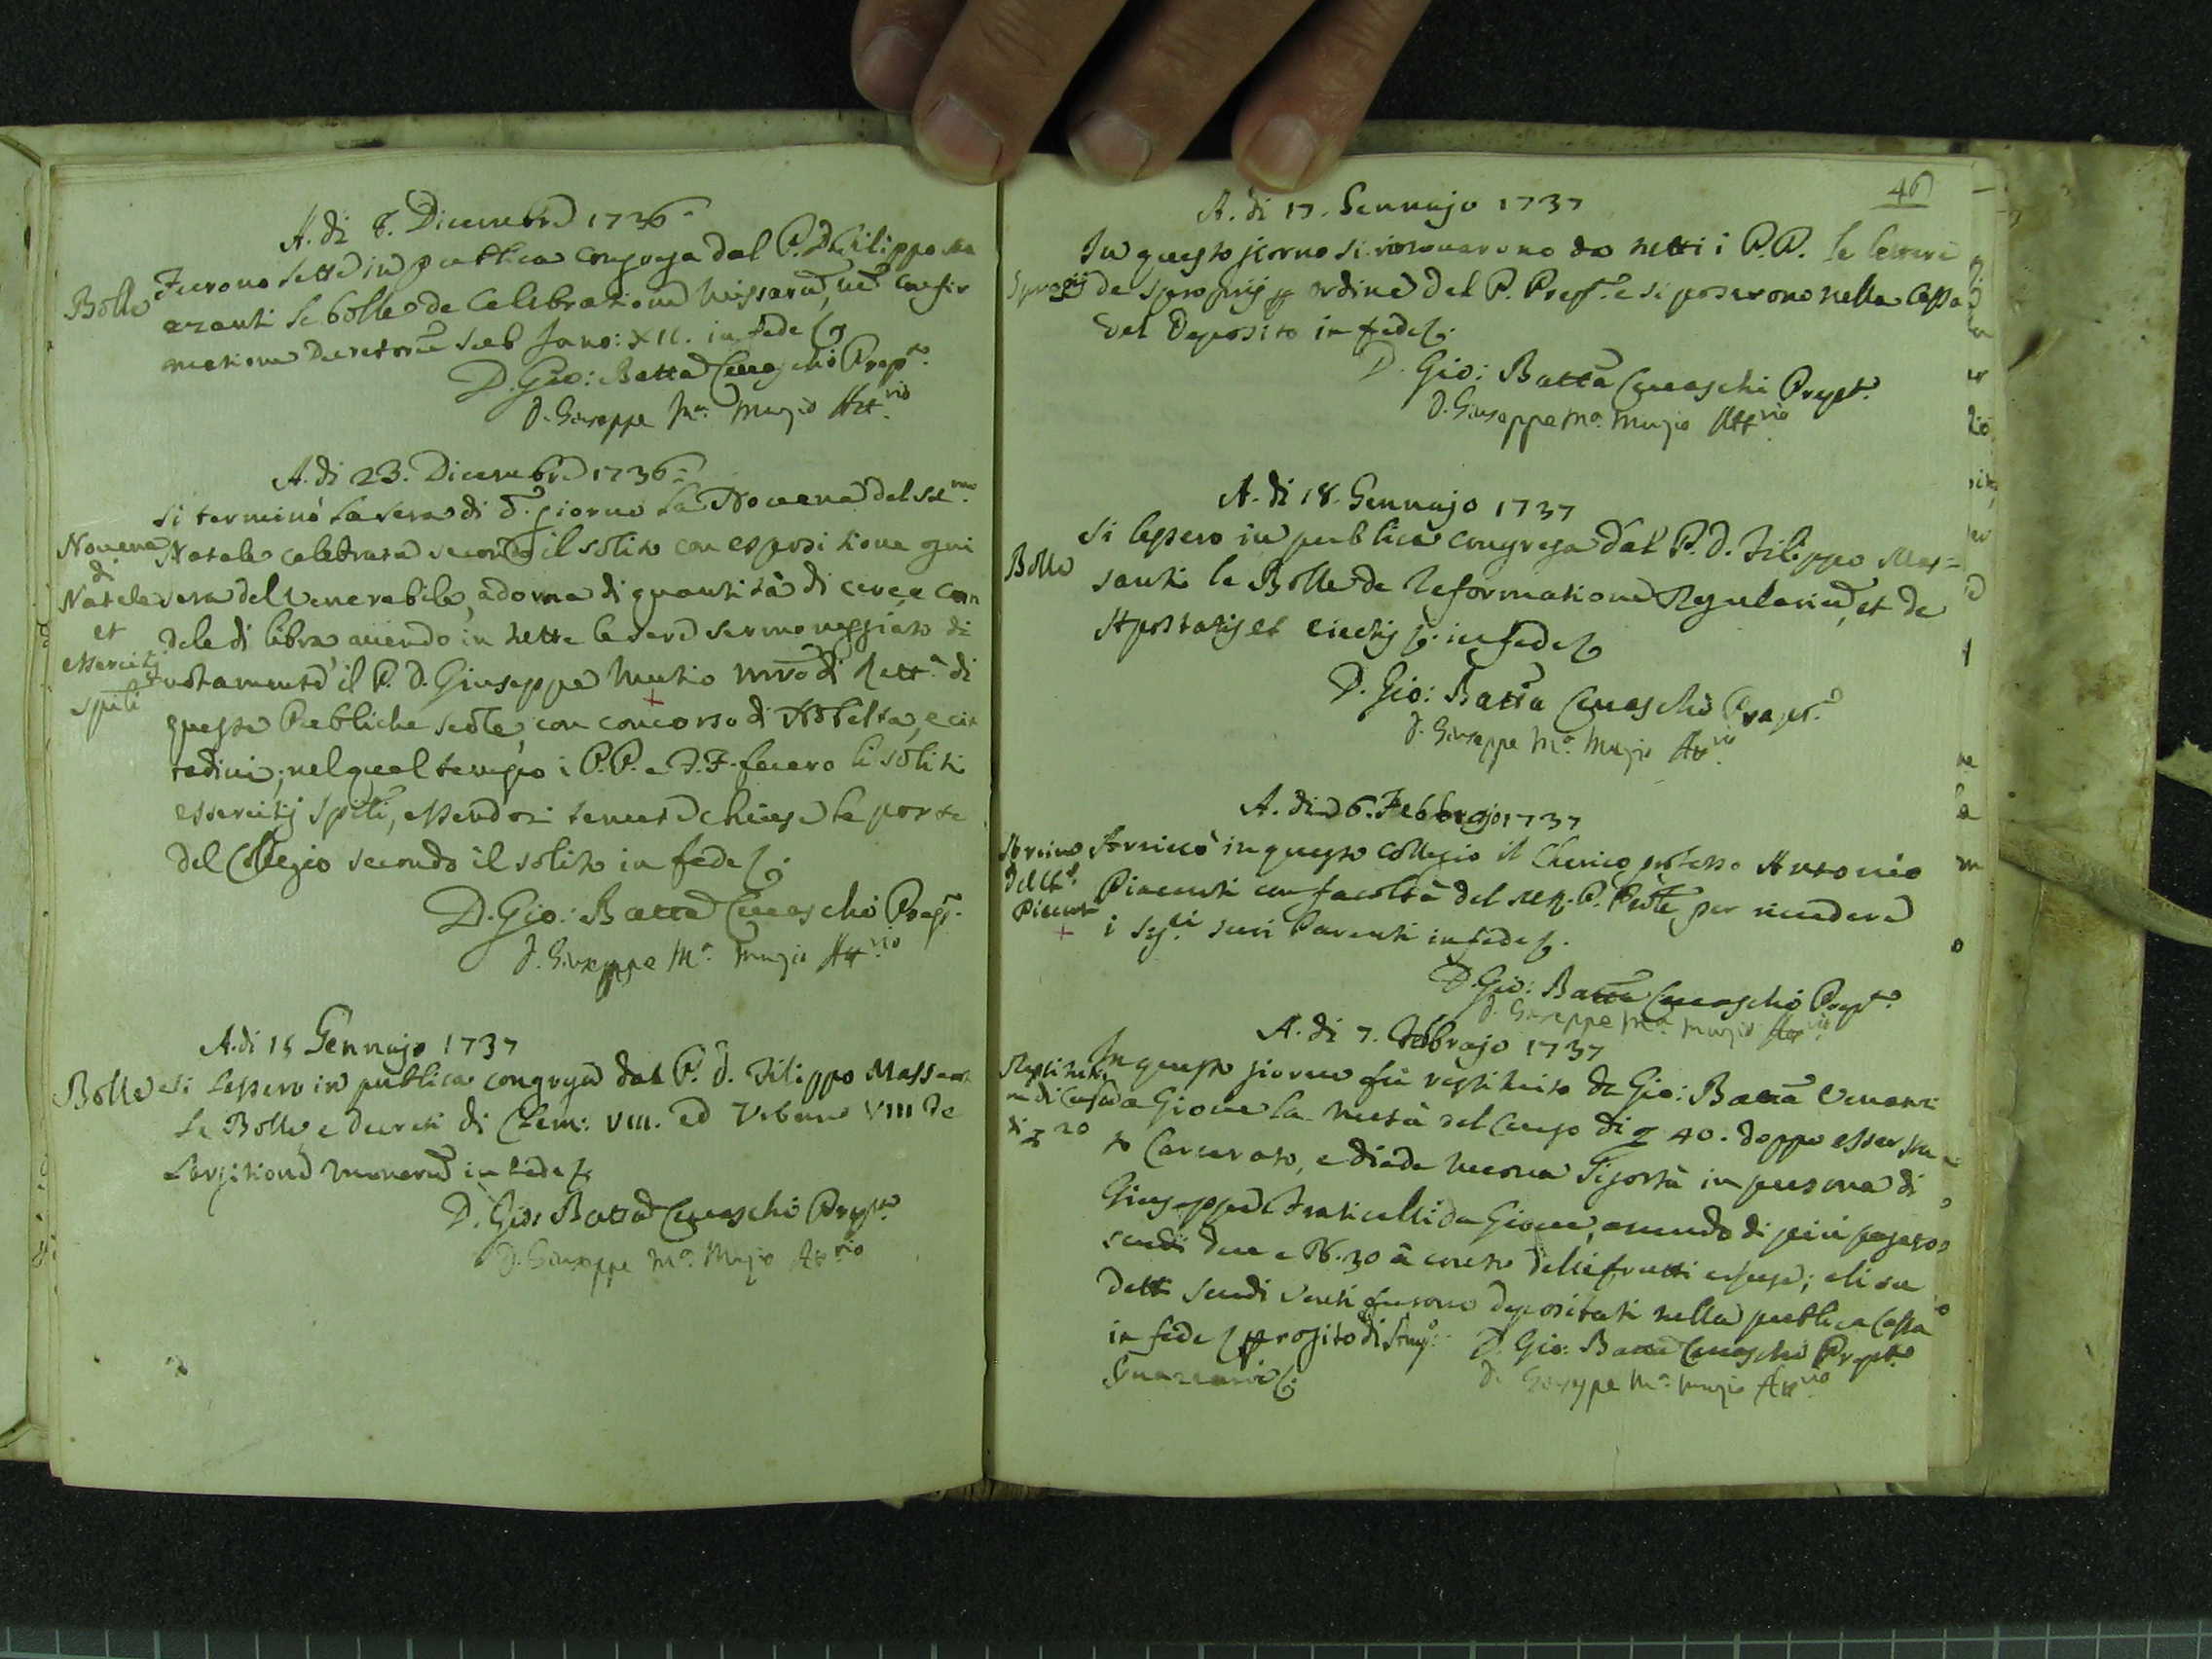 A. di 8. Dicembre 1736
Bolle
Furono lette in publica congrega dal P. D. Filippo Ma
ezanti le bolle de Celebratione Missarum, nec Confir
matione Decretorum sub Inno: XII. in fede
D. Gio: Batta Cevaschi Prep.to
D. Giuseppe M.a Muzio Att.rio
A. di 23. Dicembre 1736
Si terminò la sera di d.o giorno la Novena del SS.mo
Novena di Natale et essercitij sp̃li
Natale celebrata secondo il solito con esposizione ogni
sera del Venerabile, adorna di quantità di cere e can
dele di libra avendo in tutte le sere sermoneggiato di
votamente il P. D. Giuseppe Mutio mr̃o di Rett.a di
queste Pubbliche scole, con concorso di Nobeltà, e cit
tadini; nel qual tempo i P.P. e F.F. fecero li soliti
essercitij sp̃li, essendosi tenute chiuse le porte
del Collegio secondo il solito in fede
D. Gio: Batta Cevaschi Prep.
D. Giuseppe M.a Muzio Att.rio
A. di 15 Gennajo 1737
Bolle
Si lessero in publica congrega dal P. D. Filippo Massanti
le Bolle, e decreti di Clem: VIII. ed Urbano VIII de
Largitione munerum in fede
D. Gio: Batta Cevaschi Prep.to
D. Giuseppe M.a Muzio Att.rio
46
A. di 17. Gennajo 1737
In questo jorno si rinovarono da tutti i P.P. le lettere
Spropij
de sproprij p ordine del P. Prep.to e si poserono nella Cassa
del Deposito in fede
D. Gio: Batta Cevaschi Prep.to
D. Giuseppe M.a Muzio Att.rio
A. di 18. Gennajo 1737
Si lessero in publica congrega dal P. D. Filippo Mas=
Bolle
santi le Bolle de Reformatione Regularium, et de
Apostatis et eiectis in fede
D. Gio: Batta Cevaschi Prep.to
D. Giuseppe M.a Muzio Att.rio
A. di 6. Febbrajo 1737
Arrivo del Ch. Piacenti
Arrivò in questo Collegio il Cherico professo Antonio
Piacenti con facoltà del P. Pr̃ole, per rivedere
i Sig.ri suoi Parenti in fede
D. Gio: Batta Cevaschi Prep.to
D. Giuseppe M.a Muzio Att.rio
A. di 7. Febbrajo 1737
In questo giorno fu restituito da Gio: Batta Venanzi
da Giove la metà del Censo di 40. doppo esser sta
di 20
to Carcerato, e diede nuova Sigortà in persona di
Giuseppe Fraticelli da Giove, avendo di più pagato
scudi due e b. 30 à conto delli frutti e spese; e li su
detti scudi venti furono depositati nella publica Cassa
in fede
D. Gio: Batta Cevaschi Prep.to
D. Giuseppe M.a Muzio Att.rio